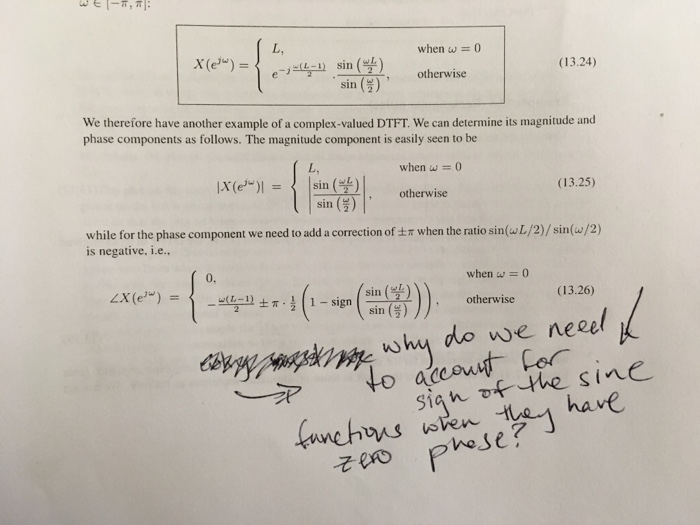 ω ∈ [−π, π]:
X(e^{jω}) = { L, when ω = 0
e^{-j ω(L-1)/2} · sin(ωL/2) / sin(ω/2), otherwise (13.24)
We therefore have another example of a complex-valued DTFT. We can determine its magnitude and
phase components as follows. The magnitude component is easily seen to be
|X(e^{jω})| = { L, when ω = 0
|sin(ωL/2) / sin(ω/2)|, otherwise (13.25)
while for the phase component we need to add a correction of ±π when the ratio sin(ωL/2)/ sin(ω/2)
is negative, i.e.,
∠X(e^{jω}) = { 0, when ω = 0
− ω(L-1)/2 ± π · 1/2 (1 − sign(sin(ωL/2) / sin(ω/2))), otherwise (13.26)
why do we need
to account for
sign of the sine
functions when they have
zero phase?